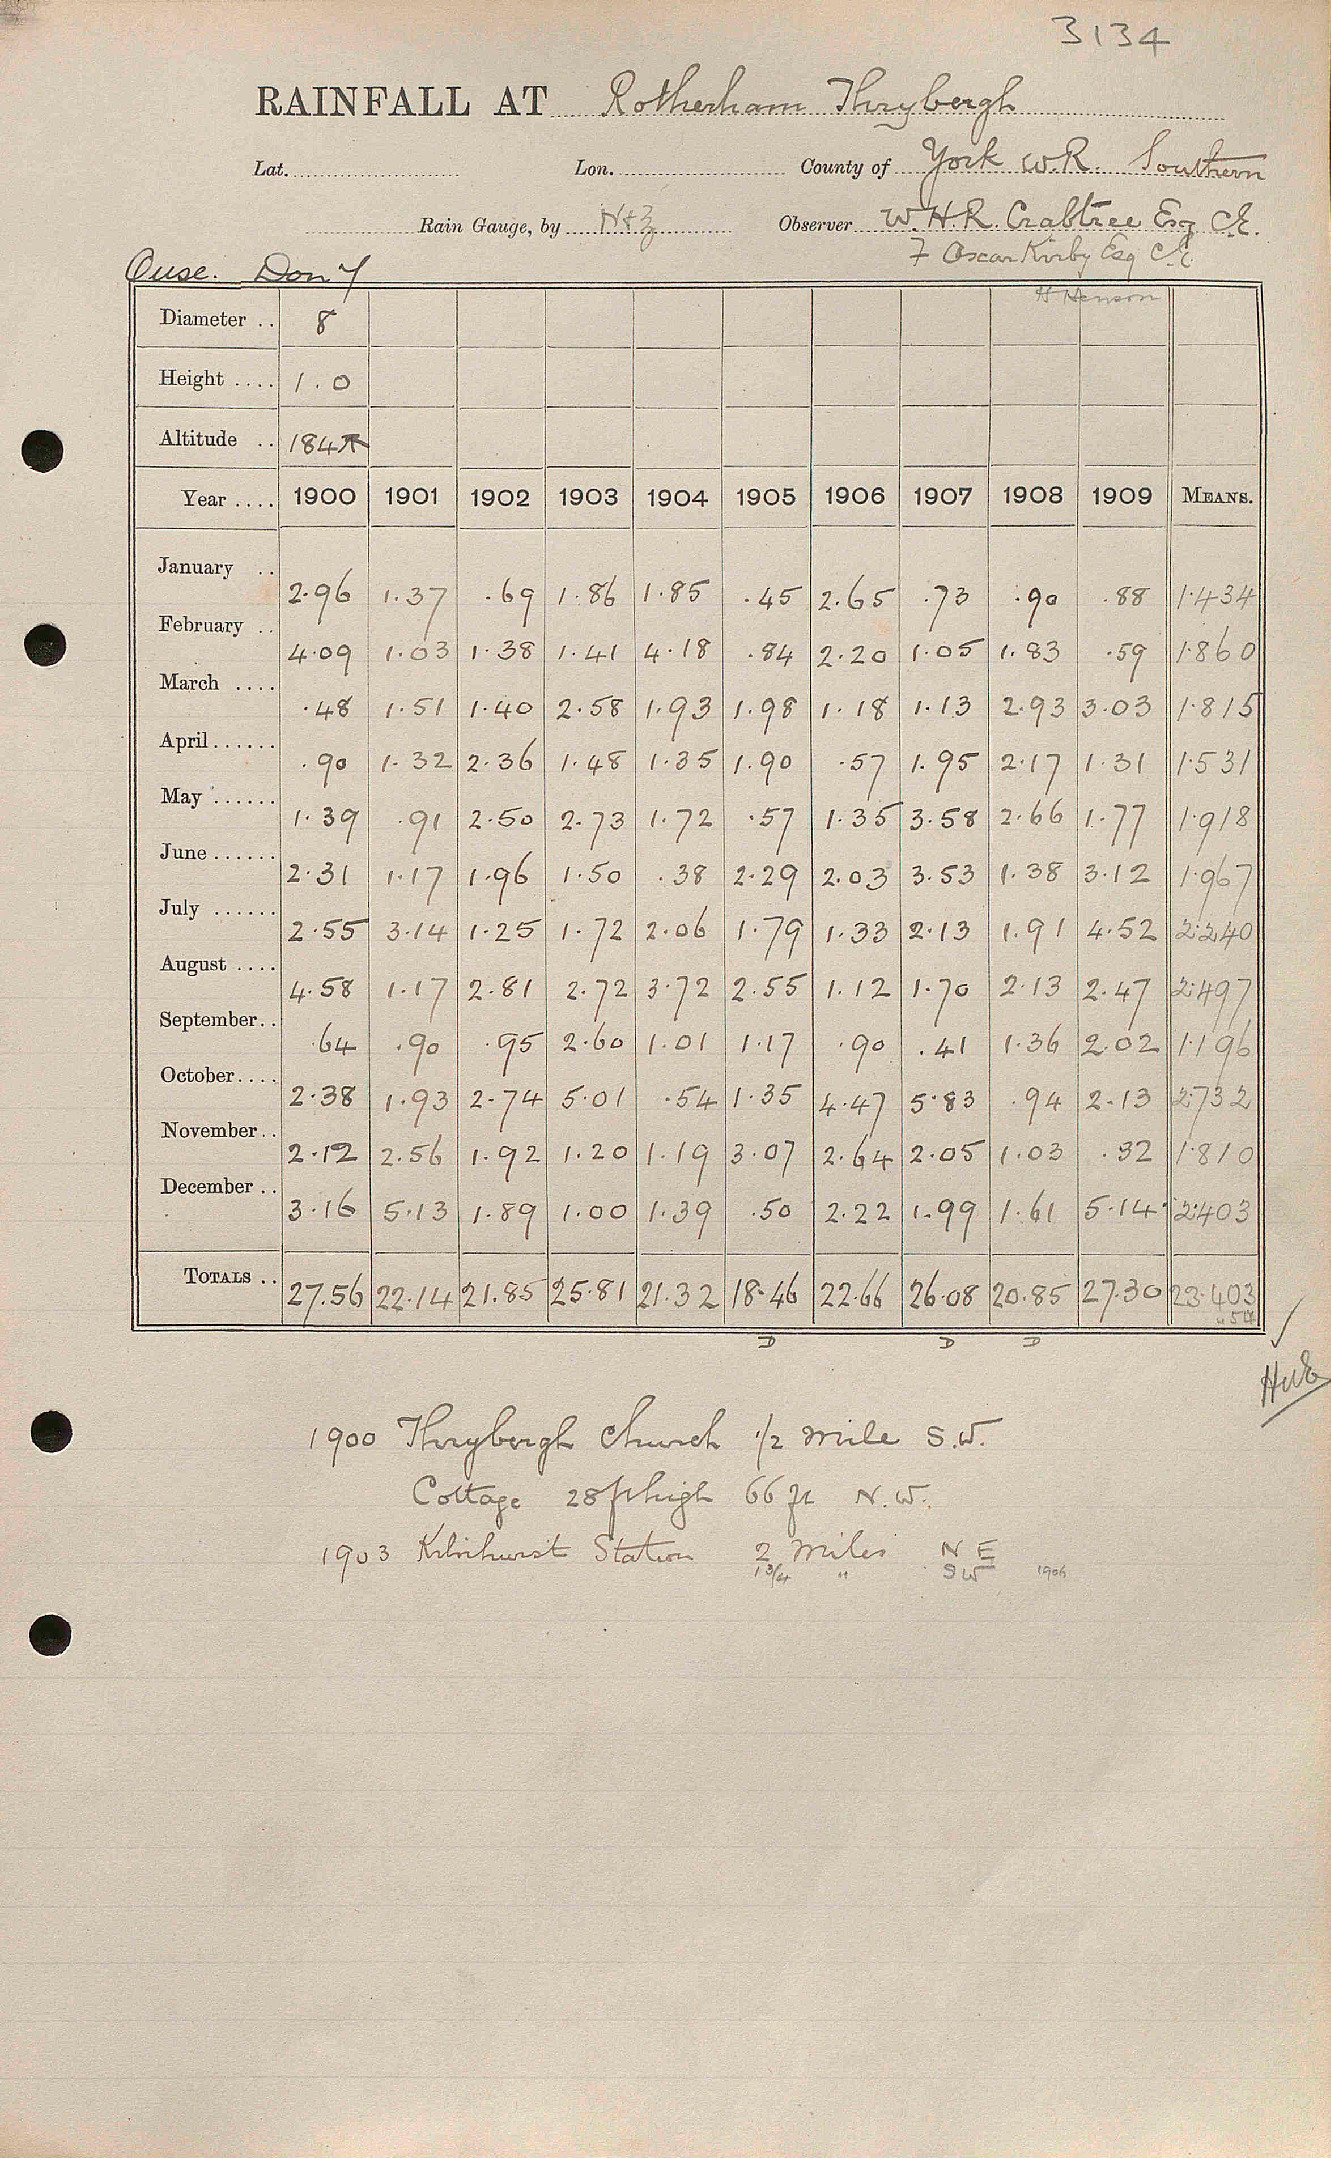 3134
RAINFALL AT Rotherham Thrybergh
Lat. Lon. County of York W.R. Southern
Rain Gauge, by N+Z Observer W.H.R. Crabtree Esq C.E.
7 Oscar Kirby Esq C.E.
Ouse. Don 7
H Henson
Diameter .. 8
Height .... 1.0
Altitude .. 184
Year .... 1900 1901 1902 1903 1904 1905 1906 1907 1908 1909 MEANS.
January .. 2.96 1.37 .69 1.86 1.85 .45 2.65 .73 .90 .88 1.434
February .. 4.09 1.03 1.38 1.41 4.18 .84 2.20 1.05 1.83 .59 1.860
March .... .48 1.51 1.40 2.58 1.93 1.98 1.18 1.13 2.93 3.03 1.815
April ...... .90 1.32 2.36 1.48 1.35 1.90 .57 1.95 2.17 1.31 1.531
May ...... 1.39 .91 2.50 2.73 1.72 .57 1.35 3.58 2.66 1.77 1.918
June ...... 2.31 1.17 1.96 1.50 .38 2.29 2.03 3.53 1.38 3.12 1.967
July ...... 2.55 3.14 1.25 1.72 2.06 1.79 1.33 2.13 1.91 4.52 2.240
August .... 4.58 1.17 2.81 2.72 3.72 2.55 1.12 1.70 2.13 2.47 2.497
September .. .64 .90 .95 2.60 1.01 1.17 .90 .41 1.36 2.02 1.196
October .... 2.38 1.93 2.74 5.01 .54 1.35 4.47 5.83 .94 2.13 2.732
November .. 2.12 2.56 1.92 1.20 1.19 3.07 2.64 2.05 1.03 .32 1.810
December .. 3.16 5.13 1.89 1.00 1.39 .50 2.22 1.99 1.61 5.14 2.403
TOTALS .. 27.56 22.14 21.85 25.81 21.32 18.46 22.66 26.08 20.85 27.30 23.403
D D D
1900 Thrybergh Church 1/2 mile S.W.
Cottage 28 ft high 66 ft N.W.
1903 Kilnhurst Station 2 miles NE
1 3/4 " SW 1906